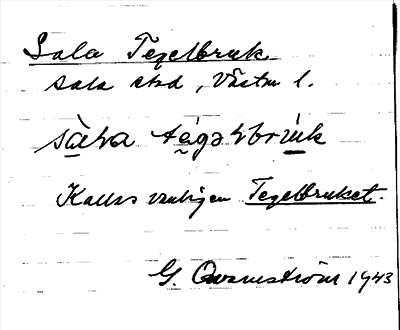 Sala Tegelbruk
Sala stad, Västm l.
sàla tégəlbru̇k
Kallas vanligen Tegelbruket.
G. Qvarnström 1943